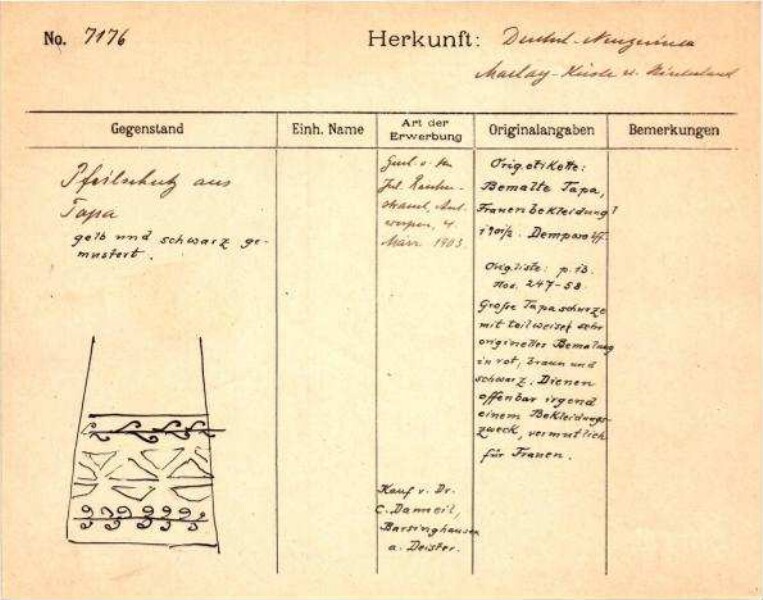 No. 7176
Herkunft: Deutsch-Neuguinea
Maclay-Küste u. Hinterland
Gegenstand
Einh. Name
Art der
Erwerbung
Originalangaben
Bemerkungen
Pfeilschutz aus
Tapa
gelb und schwarz ge-
mustert.
v.
Jul.
Ant-
werpen, 4.
März 1903
Kauf v. Dr.
C. Damneil,
Barsinghausen
a. Deister.
Orig. etikette:
Bemalte Tapa,
Frauenbekleidung?
Dempwolff.
Orig liste: p. 13.
Nos. 247-58.
Große Tapaschurze
mit teilweise sehr
origineller Bemalung
in rot, braun und
schwarz. Dienen
offenbar irgend
einem Bekleidungs-
zweck, vermutlich
für Frauen.